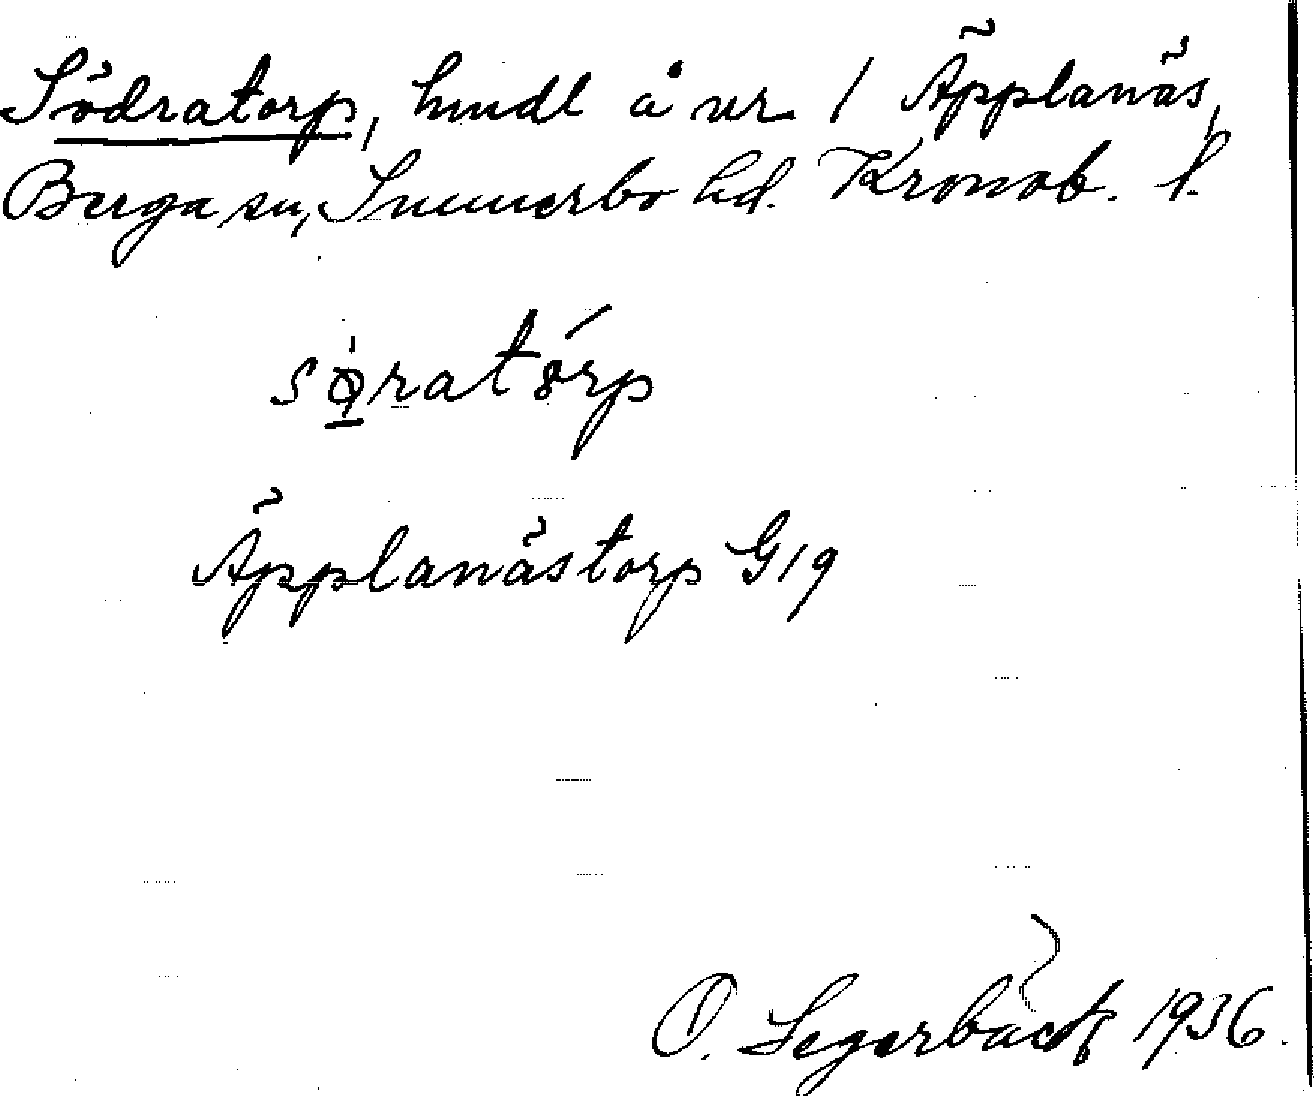 Södratorp, hmdl å nr 1 Äpplanäs,
Berga sn, Sunnerbo hd. Kronob. l.
sø̱ratórp
Äpplanästorp G19
O. Segerbäck 1936.